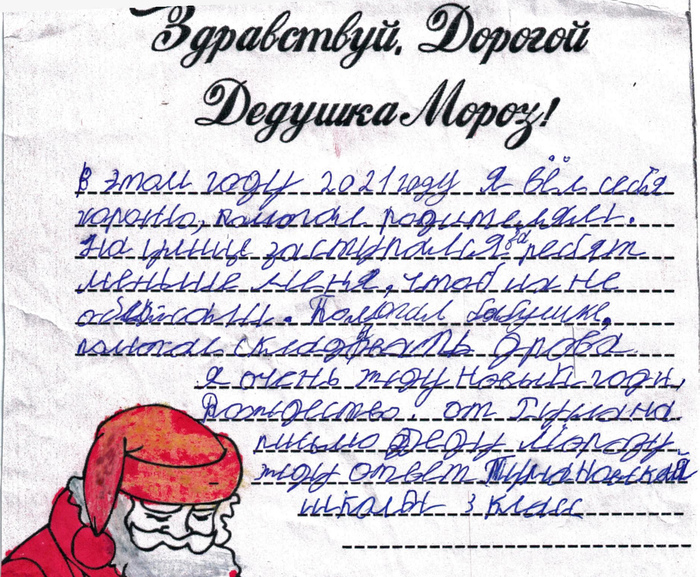 Здравствуй, Дорогой
Дедушка Мороз!
В этом году 2021 году я вёл себя
хорошо, помогал родителям.
На улице заступался за ребят
меньше меня, чтоб их не
обежали. Помогал бабушке,
помогал складывать дрова.
Я очень жду новый год,
Рождество. от Тумана
письмо Деду Морозу
жду ответ Тумановской
школы 3 класс